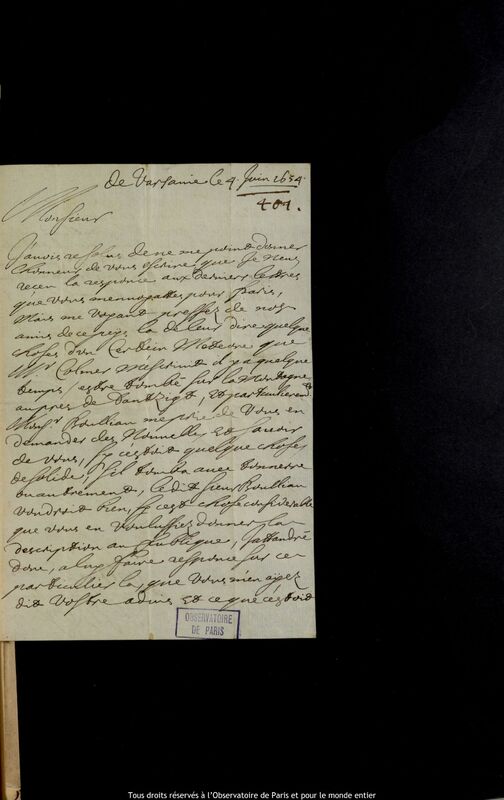 de Varsauie le 4. Juin 1654.
401.
Monsieur
J'auois resolus de ne me point donner
l'honneur de vous escrire, que Je n'eus
receu la response aux derniers lettres
que vous m'enuoyattes pour paris,
Mais me voyant pressez de nos
amis de ce pays la de leur dire quelque
choses d'un certain Meteore que
Mr. Colmer m'escriuit il y a quelque
temps, estre tombé sur la Montagne
aupres de Dantzigt, et particulierement
Monsr Boulliau me prie de vous en
demander des Nouuelles et sauoir
de vous, sy c'estoit quelque choses
de solide, s'il tomba auec tonnerre
ou autrement, ledit sieur Boulliau
voudroit bien, sy c'est chose considerable
que vous en voulussiez donner la
description au publique, J'attandré
donc, a luy faire response sur ce
particulier la, que vous m'en ayez
dit vostre aduis et ce que c'estoit
OBSERVATOIRE
DE PARIS
Tous droits réservés à l'Observatoire de Paris et pour le monde entier